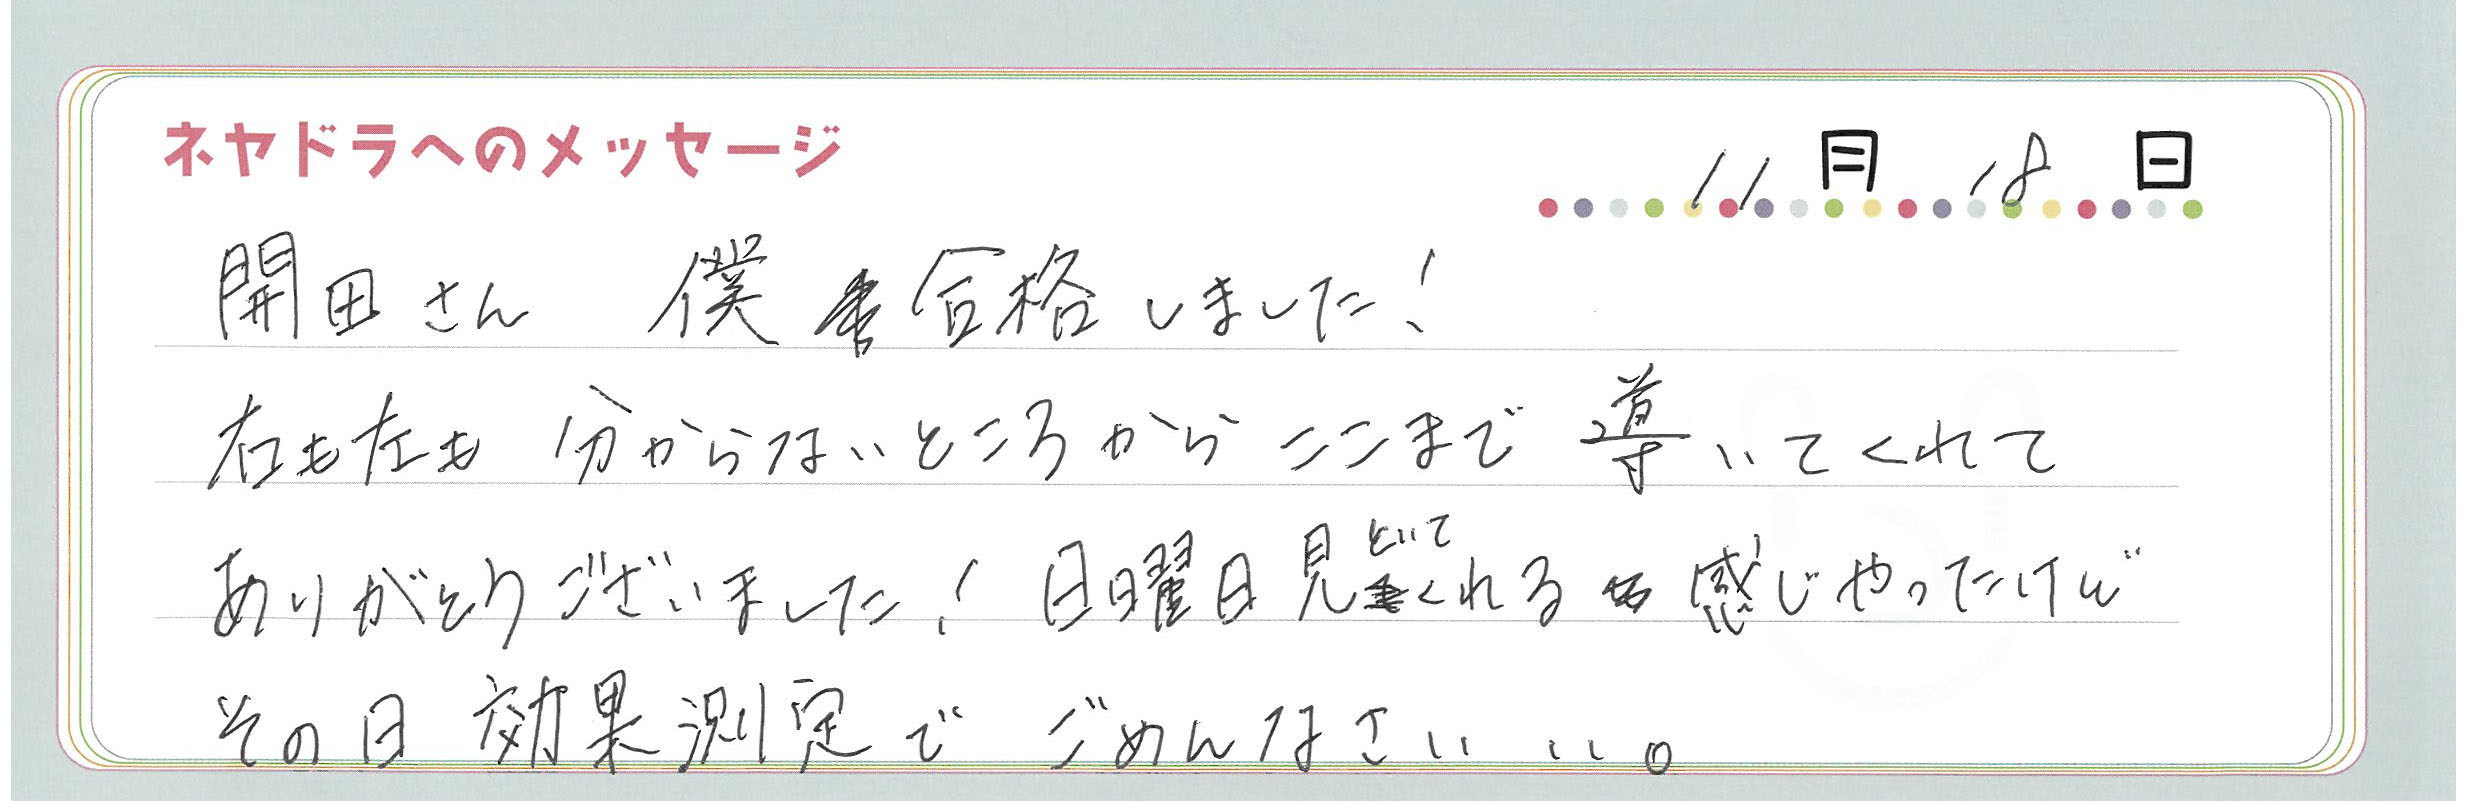 ネヤドラへのメッセージ
11月18日
開田さん 僕 合格しました!
右も左も 分からないところから ここまで 導いてくれて
ありがとうございました! 日曜日見といてくれる感じやったけど
その日 効果測定で ごめんなさい ‥。